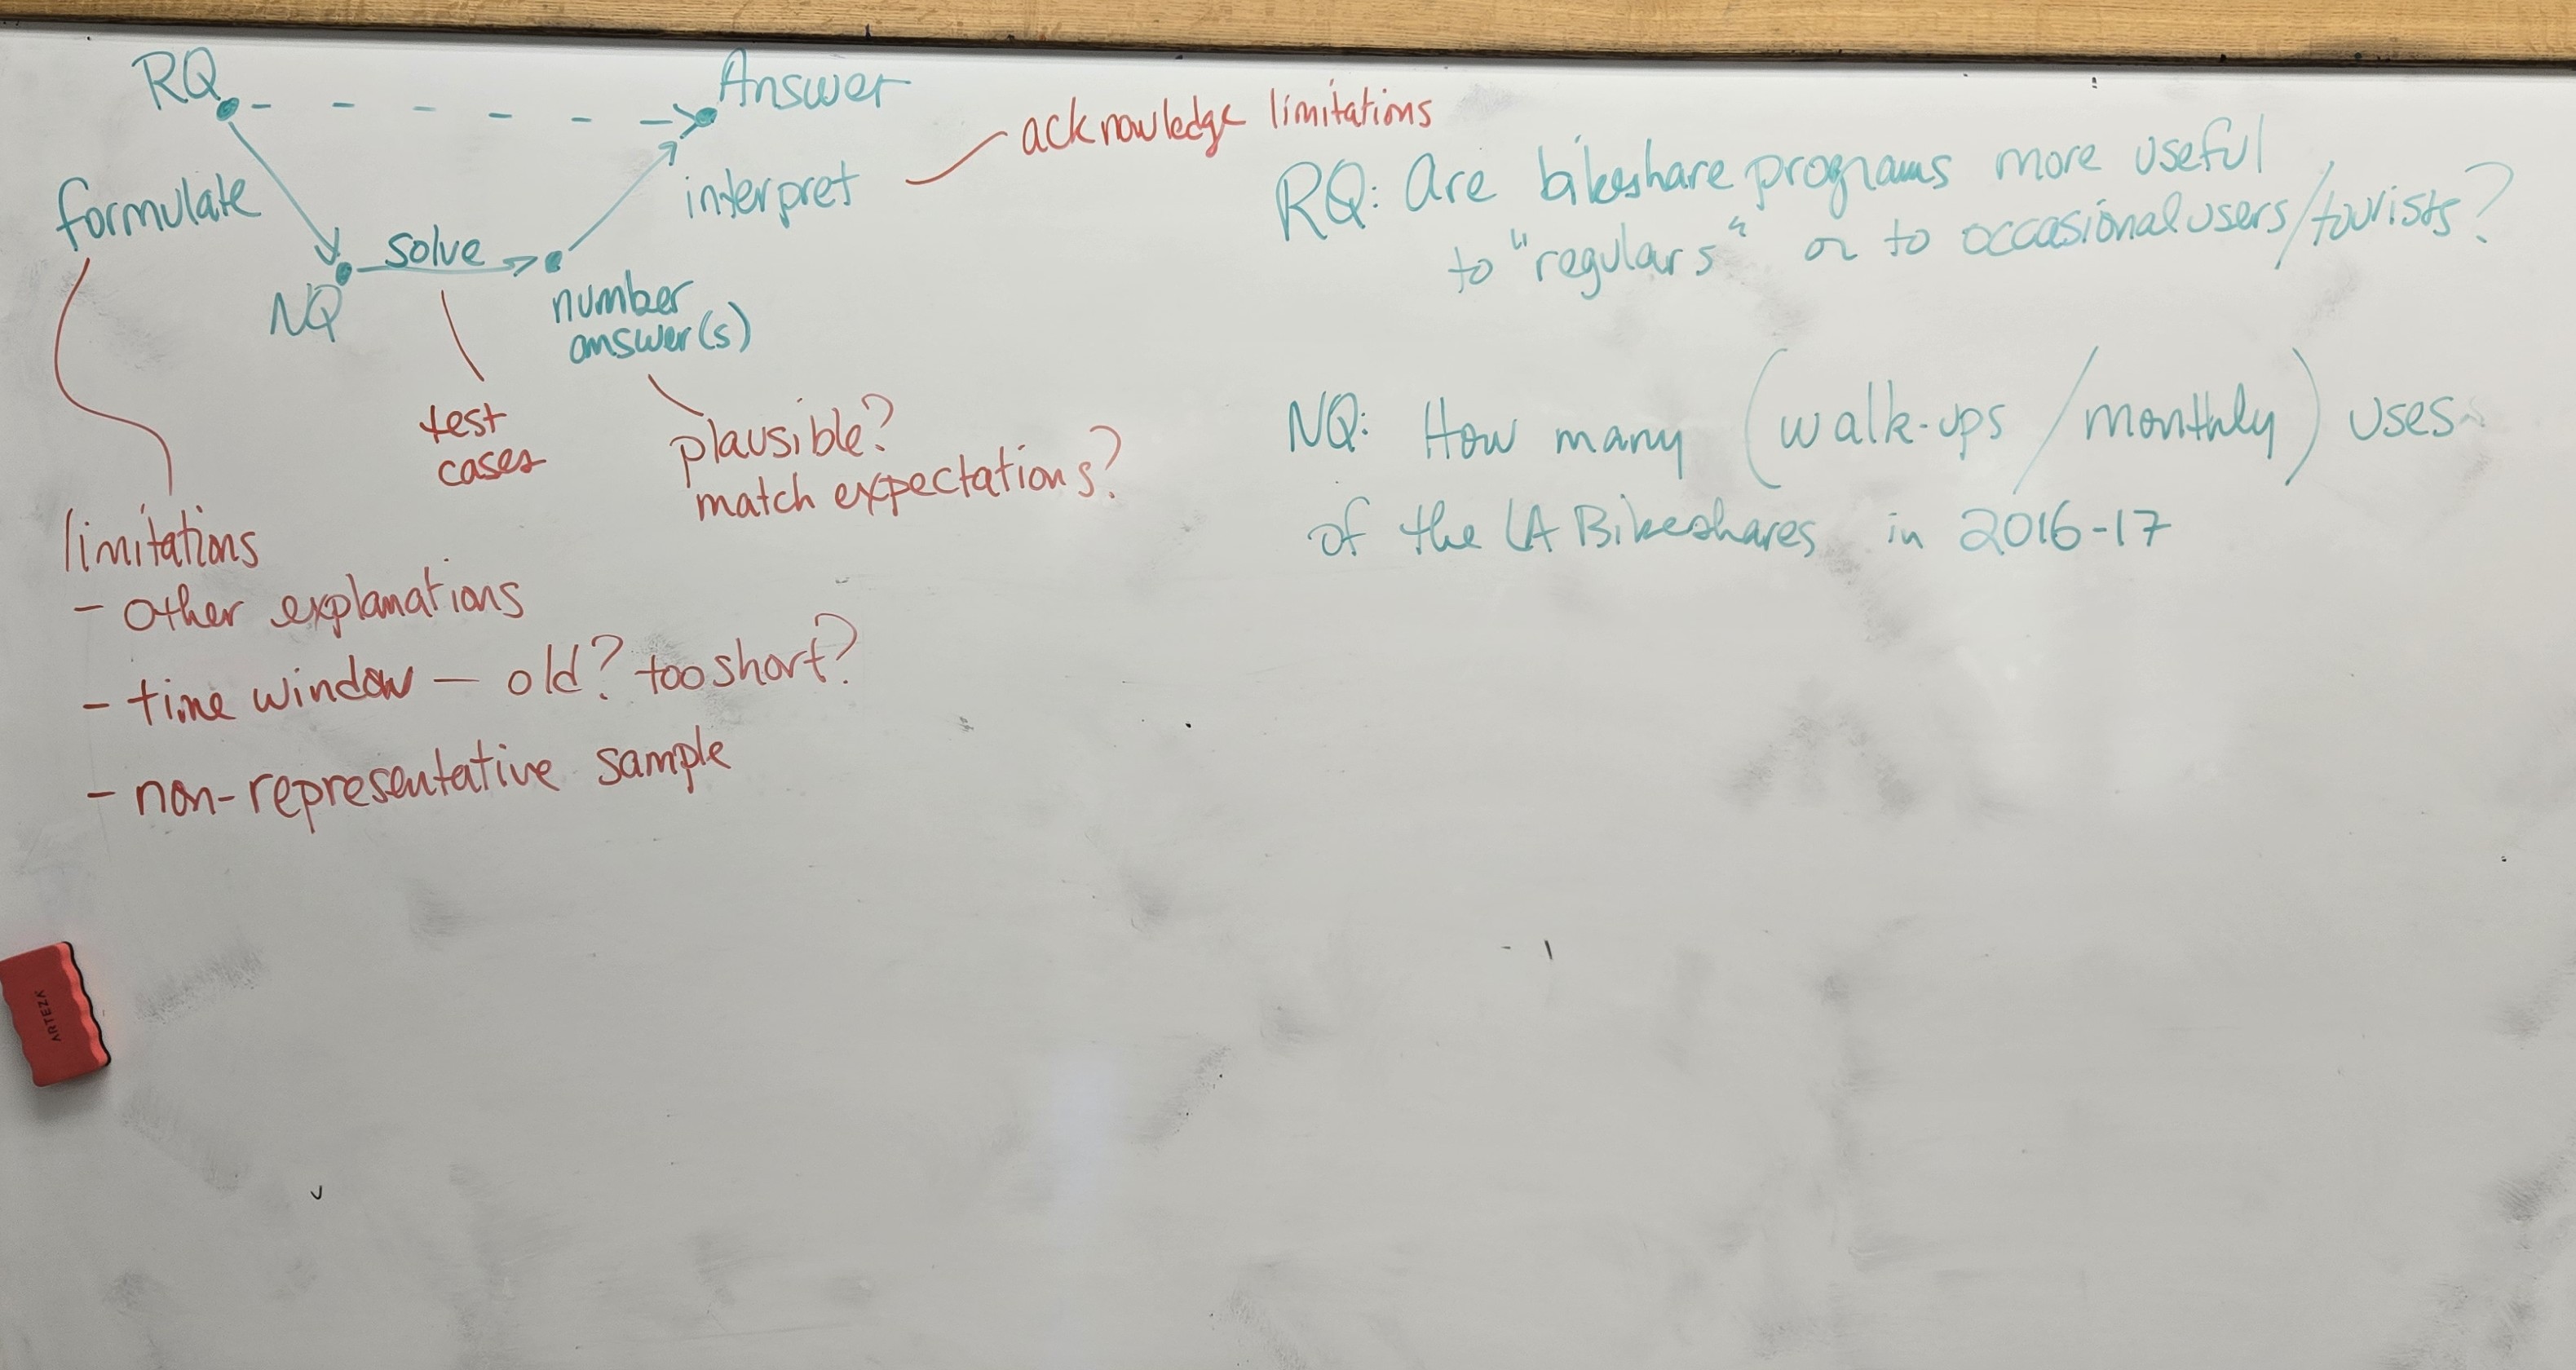 RQ
Answer
formulate
solve
interpret
acknowledge limitations
NQ
number
answer(s)
test
cases
plausible?
match expectations?
limitations
- other explanations
- time window — old? too short?
- non-representative sample
RQ: Are bikeshare programs more useful
to "regulars" or to occasional users/tourists?
NQ: How many (walk-ups / monthly) uses
of the LA Bikeshares in 2016-17
ARTEZA